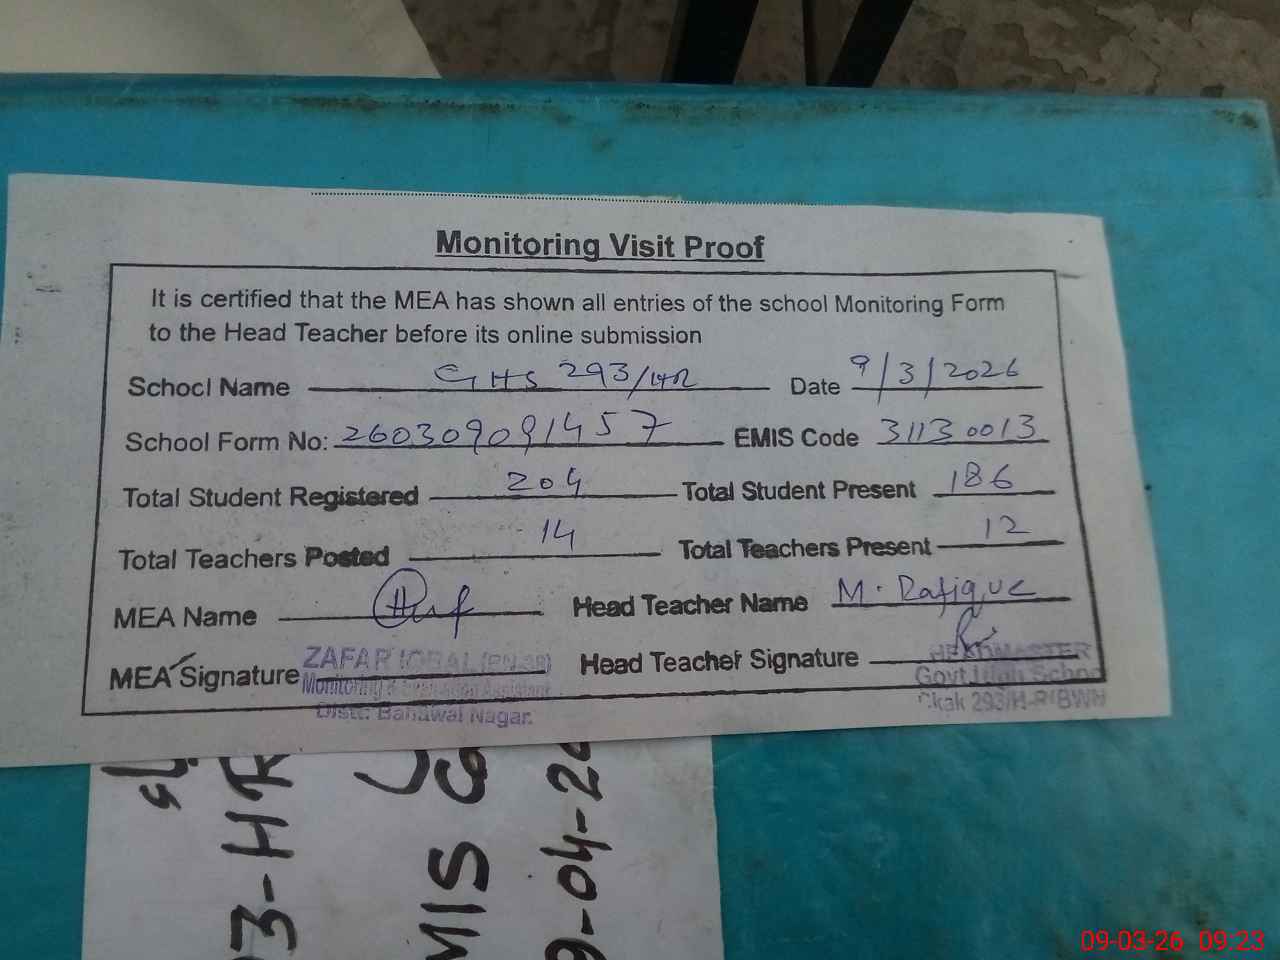 Monitoring Visit Proof
It is certified that the MEA has shown all entries of the school Monitoring Form
to the Head Teacher before its online submission
School Name GHS 293/HR Date 9/3/2026
School Form No: 260309091457 EMIS Code 31130013
Total Student Registered 204 Total Student Present 186
Total Teachers Posted 14 Total Teachers Present 12
MEA Name Head Teacher Name M. Rafique
MEA Signature Head Teacher Signature
ZAFAR IQBAL
Monitoring & Evaluation Assistant
Distt: Bahawal Nagar.
HEADMASTER
Govt High School
Chak 293/H-R BWN
3-HR
MIS
9-04-20
09-03-26 09:23